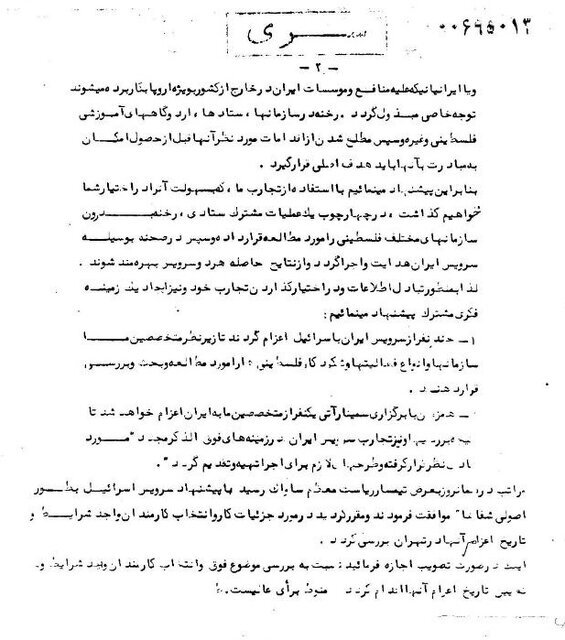 ۰۰۶۹۵۰۱۳
ســـری
- ۲ -
ویا ایرانیانیکه علیه منافع و موسسات ایران در خارج از کشور بویژه اروپا بکار برده میشوند
توجه خاصی مبذول گردد . رخنه در سازمانها ، ستادها ، اردوگاههای آموزشی
فلسطینی وغیره وسپس مطلع شدن از اقدامات مورد نظر آنها قبل از حصول امکان
به مبادرت بآنها باید هدف اصلی قرار گیرد .
بنابراین پیشنهاد مینمائیم با استفاده از تجارب ما ، که بسهولت آنرا در اختیار شما
خواهیم گذاشت ، در چهارچوب یک عملیات مشترک ستادی ، رخنه بدرون
سازمانهای مختلف فلسطینی را مورد مطالعه قرار داده وسپس در صحنه بوسیله
سرویس ایران هدایت واجرا گردد واز نتایج حاصله هر دو سرویس بهره مند شوند .
لذا بمنظور تبادل اطلاعات ودر اختیار گذاردن تجارب خود ونیز ایجاد یک زمینه
فکری مشترک پیشنهاد مینمائیم :
۱- چند نفر از سرویس ایران باسرائیل اعزام گردند تا زیر نظر متخصصین ما
سازمانها وانواع فعالیتها وشگرد کار فلسطینی ها را مورد مطالعه وبحث وبررسی
قرار دهند .
همزمان با برگزاری سمینار آتی یکنفر از متخصصین ما به ایران اعزام خواهد شد تا
تجارب سرویس ایران در زمینه های فوق الذکر مجددا" مورد
نظر قرار گرفته وطرحهای لازم برای اجرا تهیه وتقدیم گردد " .
مراتب در رهانروز بعرض تیمسار ریاست معظم ساواک رسید با پیشنهاد سرویس اسرائیل بطور
اصولی شفاها" موافقت فرمودند ومقرر گردید در مورد جزئیات کار وانتخاب کارمندان واجد شرایط و
تاریخ اعزام آنها در تهران بررسی گردد .
است در صورت تصویب اجازه فرمائید نسبت به بررسی موضوع فوق وانتخاب کارمندان واجد شرایط و
تعیین تاریخ اعزام آنها اقدام گردد منوط برأی عالیست .